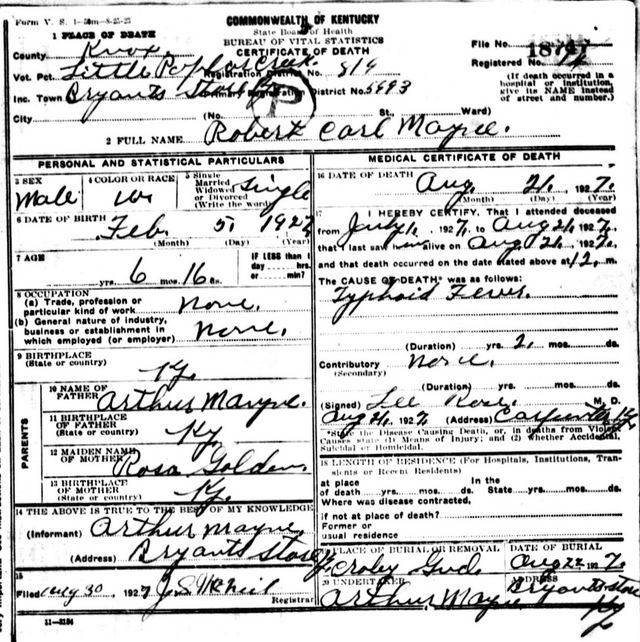 Form V. S. 1-50m-8-25-25
COMMONWEALTH OF KENTUCKY
State Board of Health
BUREAU OF VITAL STATISTICS
CERTIFICATE OF DEATH
1 PLACE OF DEATH
County Knox
Vot. Pct. Little Poplar Creek. Registration District No. 814
Inc. Town Bryants Store Primary Registration District No. 5693
City (No. St., Ward)
File No.
Registered No.
(If death occurred in a hospital or institution, give its NAME instead of street and number.)
P
2 FULL NAME Robert Carl Mayne.
PERSONAL AND STATISTICAL PARTICULARS
3 SEX Male
4 COLOR OR RACE W.
5 Single Married Widowed or Divorced (Write the word) Single
6 DATE OF BIRTH Feb. 5, 192
(Month) (Day) (Year)
7 AGE
yrs. 6 mos. 16 ds.
IF LESS than 1 day ---- hrs. or ---- min?
8 OCCUPATION
(a) Trade, profession or particular kind of work None.
(b) General nature of industry, business or establishment in which employed (or employer) None.
9 BIRTHPLACE
(State or country) Ky.
PARENTS
10 NAME OF FATHER Arthur Mayne.
11 BIRTHPLACE OF FATHER (State or country) Ky.
12 MAIDEN NAME OF MOTHER Rosa Golden
13 BIRTHPLACE OF MOTHER (State or country) Ky.
14 THE ABOVE IS TRUE TO THE BEST OF MY KNOWLEDGE
(Informant) Arthur Mayne
(Address) Bryants Store
15
Filed Aug 30, 1927 J.S. McNeil
Registrar
11-3184
MEDICAL CERTIFICATE OF DEATH
16 DATE OF DEATH Aug. 21, 1927.
(Month) (Day) (Year)
17 I HEREBY CERTIFY, That I attended deceased
from July 1, 1927, to Aug 21, 1927,
that I last saw h alive on Aug 21, 1927,
and that death occurred on the date stated above at 12 m.
The CAUSE OF DEATH* was as follows:
Typhoid Fever.
(Duration) yrs. 2 mos. ds.
Contributory None.
(Secondary)
(Duration) yrs. mos. ds.
(Signed) Lee Rose, M. D.
Aug 21, 1927 (Address) Carpenter Ky
*State the Disease Causing Death, or, in deaths from Violent Causes state (1) Means of Injury; and (2) whether Accidental, Suicidal or Homicidal.
18 LENGTH OF RESIDENCE (For Hospitals, Institutions, Transients or Recent Residents)
at place of death yrs. mos. ds. In the State yrs. mos. ds.
Where was disease contracted,
if not at place of death?
Former or usual residence
19 PLACE OF BURIAL OR REMOVAL
Croley Gvd.
DATE OF BURIAL
Aug 22, 1927.
20 UNDERTAKER
Arthur Mayne
ADDRESS
Bryants Store
Ky